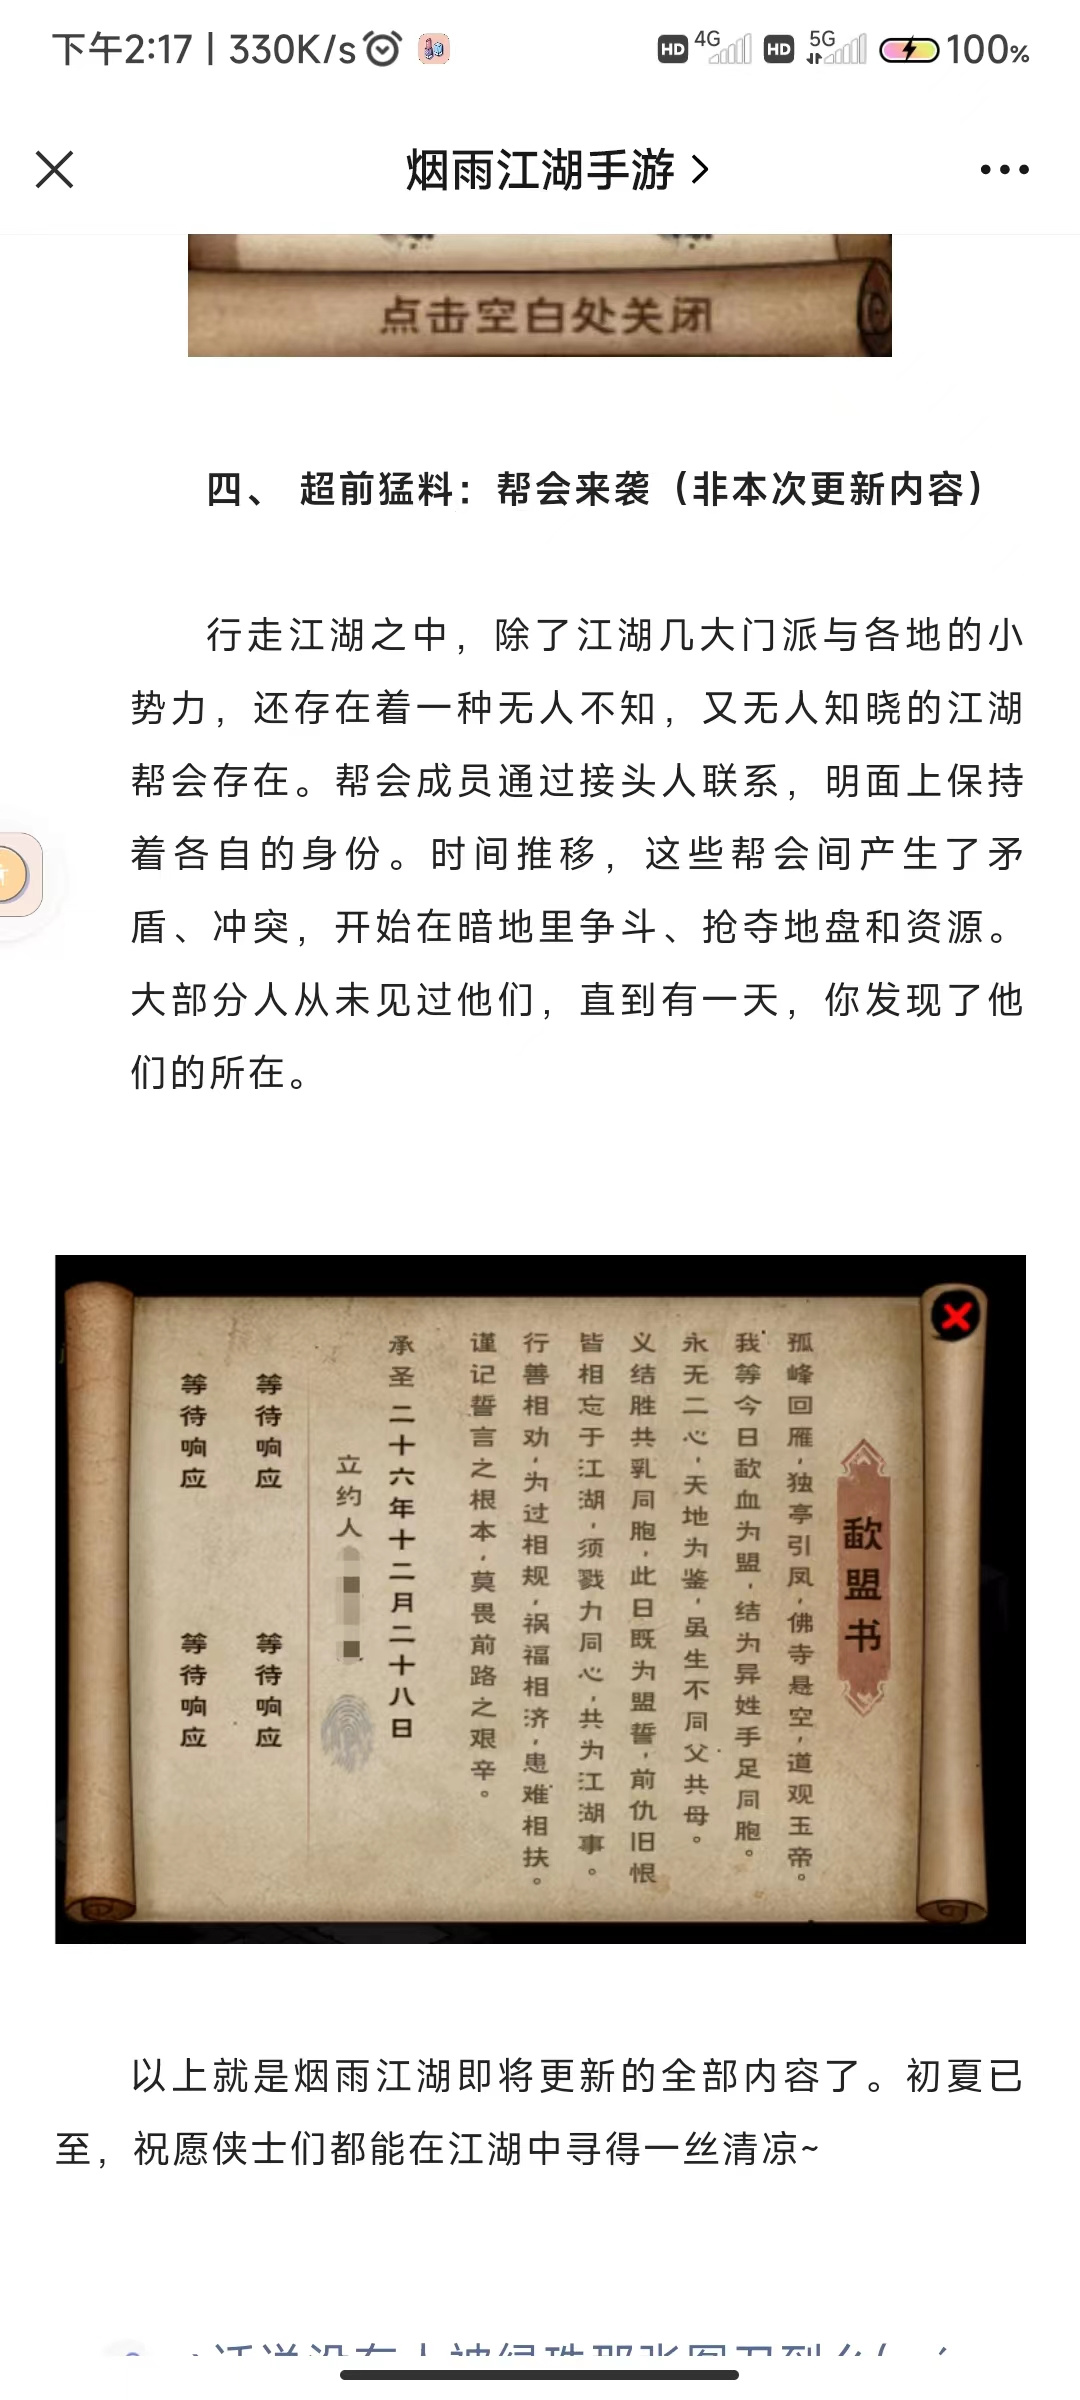 下午2:17 | 330K/s
HD 4G HD 5G 100%
烟雨江湖手游 >
点击空白处关闭
四、 超前猛料：帮会来袭（非本次更新内容）
行走江湖之中，除了江湖几大门派与各地的小
势力，还存在着一种无人不知，又无人知晓的江湖
帮会存在。帮会成员通过接头人联系，明面上保持
着各自的身份。时间推移，这些帮会间产生了矛
盾、冲突，开始在暗地里争斗、抢夺地盘和资源。
大部分人从未见过他们，直到有一天，你发现了他
们的所在。
歃盟书
孤峰回雁，独亭引凤，佛寺悬空，道观玉帝。
我等今日歃血为盟，结为异姓手足同胞。
永无二心，天地为鉴，虽生不同父共母。
义结胜共乳同胞，此日既为盟誓，前仇旧恨
皆相忘于江湖，须戮力同心，共为江湖事。
行善相劝，为过相规，祸福相济，患难相扶。
谨记誓言之根本，莫畏前路之艰辛。
承圣二十六年十二月二十八日
立约人
等待响应
等待响应
等待响应
等待响应
以上就是烟雨江湖即将更新的全部内容了。初夏已
至，祝愿侠士们都能在江湖中寻得一丝清凉~